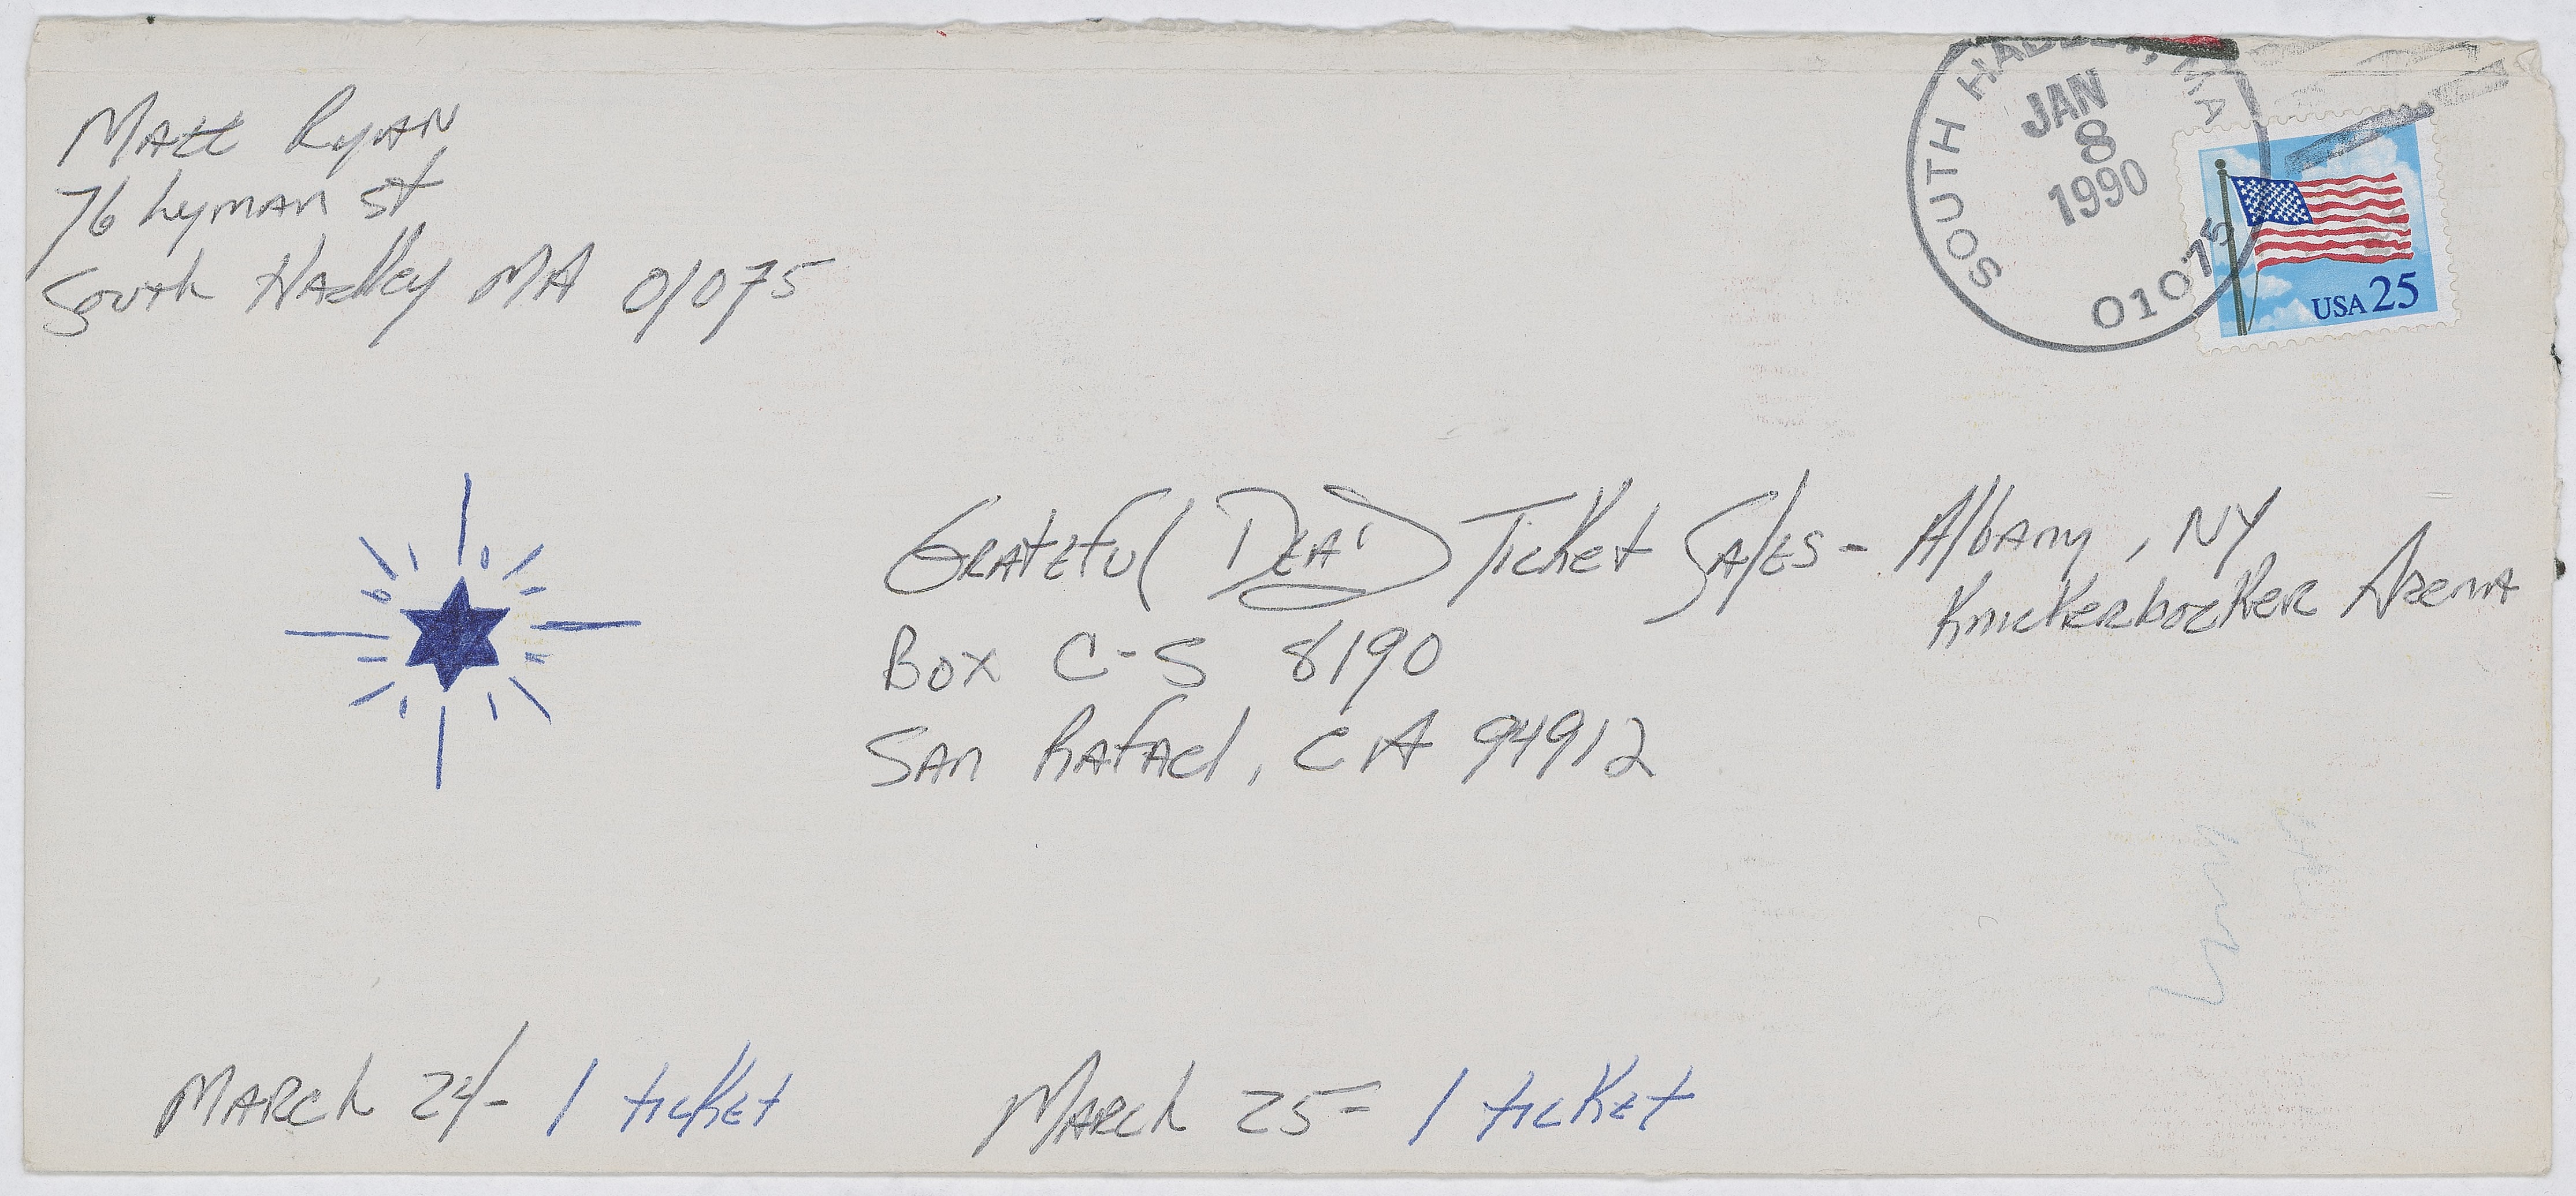 Matt Ryan
76 Lyman St
South Hadley MA 01075
SOUTH HADLEY, MA
JAN
8
1990
01075
USA 25
Grateful Dead Ticket Sales - Albany, NY
Knickerbocker Arena
Box C-S 8190
San Rafael, CA 94912
March 24 - 1 ticket
March 25 - 1 ticket